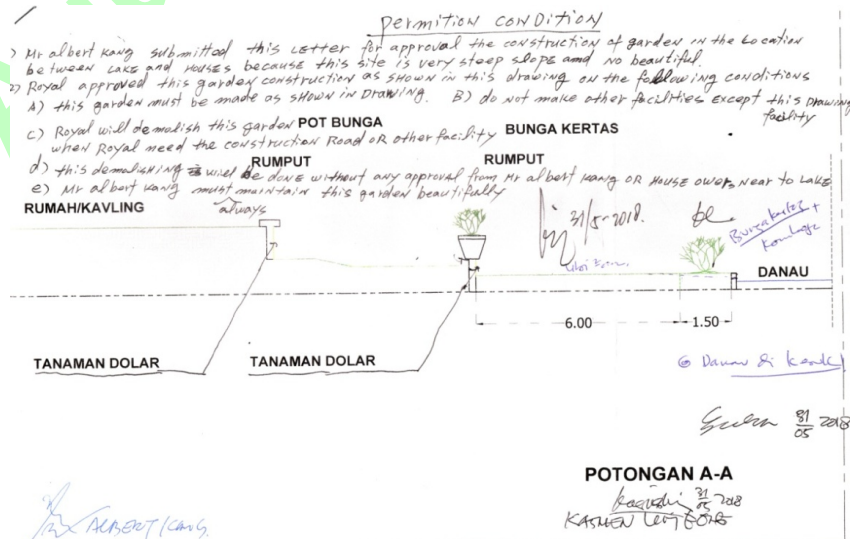 permition condition
1) Mr albert kang submitted this Letter for approval the construction of garden in the Location
between Lake and Houses because this site is very steep slope and no beautiful.
2) Royal approved this garden construction as shown in this drawing on the following conditions
A) this garden must be made as shown in Drawing. B) do not make other facilities Except this Drawing
facility
c) Royal will demolish this garden POT BUNGA
when Royal need the construction Road OR other facility BUNGA KERTAS
RUMPUT RUMPUT
d) this demolishing will be done without any approval from Mr albert kang OR House owers near to Lake
e) Mr albert kang must maintain this garden beautifully
always
RUMAH/KAVLING
31/5-2018.
Bunga kertas +
DANAU
6.00 1.50
TANAMAN DOLAR TANAMAN DOLAR
31/05 2018
POTONGAN A-A
31/05 2018
ALBERT KANG.